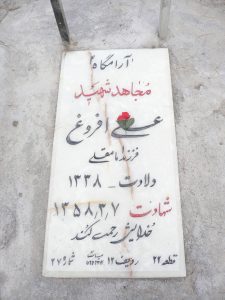 آرامگاه
مجاهد شهید
علی افروغ
فرزند مامقلی
ولادت - ۱۳۳۸
شهادت ۱۳۵۸٫۳٫۷
خدایش رحمت کند
قطعه ۲۴ ردیف ۱۲ شماره ۲۷